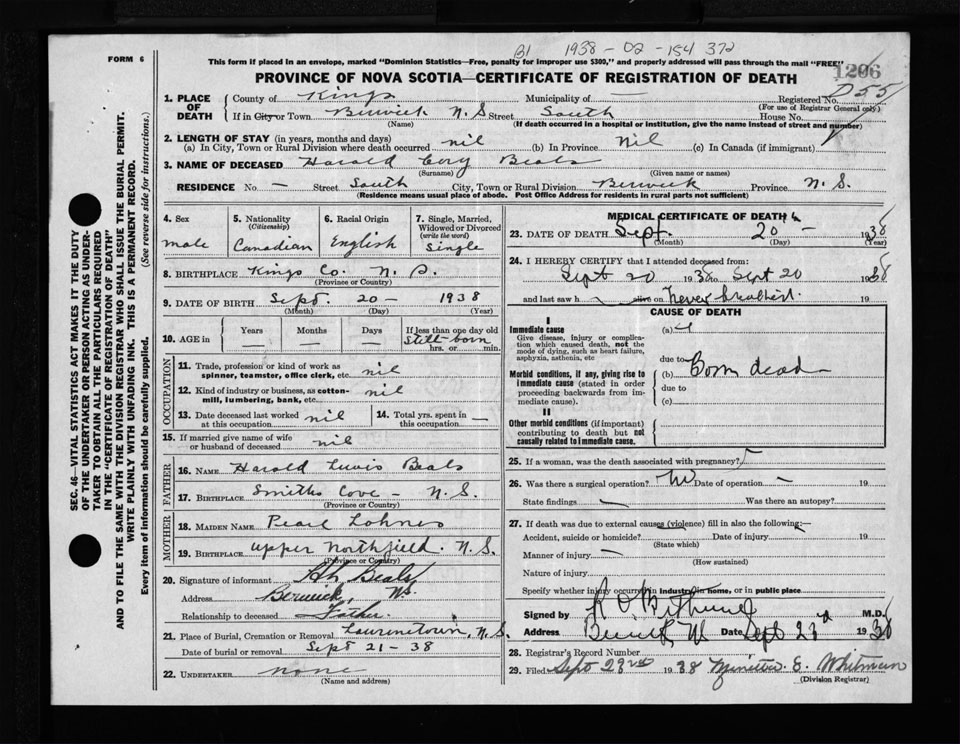 B1 1938 - 02 - 154 372
FORM 6
This form if placed in an envelope, marked "Dominion Statistics—Free, penalty for improper use $300," and properly addressed will pass through the mail "FREE"
PROVINCE OF NOVA SCOTIA—CERTIFICATE OF REGISTRATION OF DEATH
1206
D55
SEC. 46—VITAL STATISTICS ACT MAKES IT THE DUTY
OF THE UNDERTAKER OR PERSON ACTING AS UNDER-
TAKER TO OBTAIN ALL THE PARTICULARS REQUIRED
IN THE "CERTIFICATE OF REGISTRATION OF DEATH"
AND TO FILE THE SAME WITH THE DIVISION REGISTRAR WHO SHALL ISSUE THE BURIAL PERMIT.
WRITE PLAINLY WITH UNFADING INK. THIS IS A PERMANENT RECORD.
Every item of information should be carefully supplied. (See reverse side for instructions.)
1. PLACE OF DEATH
County of Kings Municipality of — Registered No.
(For use of Registrar General only)
If in City or Town Berwick N.S Street South House No.
(Name) (If death occurred in a hospital or institution, give the name instead of street and number)
2. LENGTH OF STAY (in years, months and days)
(a) In City, Town or Rural Division where death occurred nil (b) In Province Nil (c) In Canada (if immigrant)
3. NAME OF DECEASED Harold Cory Beals
(Surname) (Given name or names)
RESIDENCE No — Street South City, Town or Rural Division Berwick Province N.S.
(Residence means usual place of abode. Post Office Address for residents in rural parts not sufficient)
4. Sex male
5. Nationality (Citizenship) Canadian
6. Racial Origin English
7. Single, Married, Widowed or Divorced (write the word) Single
8. BIRTHPLACE Kings Co. N.S.
(Province or Country)
9. DATE OF BIRTH Sept. 20 — 1938
(Month) (Day) (Year)
10. AGE in Years — Months — Days — If less than one day old Still-born hrs. or min.
OCCUPATION
11. Trade, profession or kind of work as spinner, teamster, office clerk, etc. nil
12. Kind of industry or business, as cotton-mill, lumbering, bank, etc. nil
13. Date deceased last worked at this occupation nil
14. Total yrs. spent in this occupation —
15. If married give name of wife or husband of deceased nil
FATHER
16. NAME Harold Lewis Beals
17. BIRTHPLACE Smiths Cove - N.S.
(Province or Country)
MOTHER
18. MAIDEN NAME Pearl Lohnes
19. BIRTHPLACE Upper Northfield. N.S.
(Province or Country)
20. Signature of informant Beals
Address Berwick, NS.
Relationship to deceased Father
21. Place of Burial, Cremation or Removal Lawrencetown, N.S.
Date of burial or removal Sept 21 - 38
22. UNDERTAKER none
(Name and address)
MEDICAL CERTIFICATE OF DEATH
23. DATE OF DEATH Sept. 20 - 1938
(Month) (Day) (Year)
24. I HEREBY CERTIFY that I attended deceased from:
Sept 20 1938 to Sept 20 1938
and last saw h alive on Never breathed. 19
CAUSE OF DEATH
I
Immediate cause
Give disease, injury or complication which caused death, not the mode of dying, such as heart failure, asphyxia, asthenia, etc
(a)
due to
Morbid conditions, if any, giving rise to immediate cause (stated in order proceeding backwards from immediate cause).
(b) Born dead
due to
(c)
II
Other morbid conditions (if important) contributing to death but not causally related to immediate cause.
25. If a woman, was the death associated with pregnancy?
26. Was there a surgical operation? No Date of operation — 19
State findings — Was there an autopsy?
27. If death was due to external causes (violence) fill in also the following:—
Accident, suicide or homicide? Date of injury 19
(State which)
Manner of injury —
(How sustained)
Nature of injury
Specify whether injury occurred in industry, in home, or in public place
Signed by M.D.
Address Berwick NS Date Sept 23rd 1938
28. Registrar's Record Number
29. Filed Sept 23rd 1938 E. Whitman
(Division Registrar)